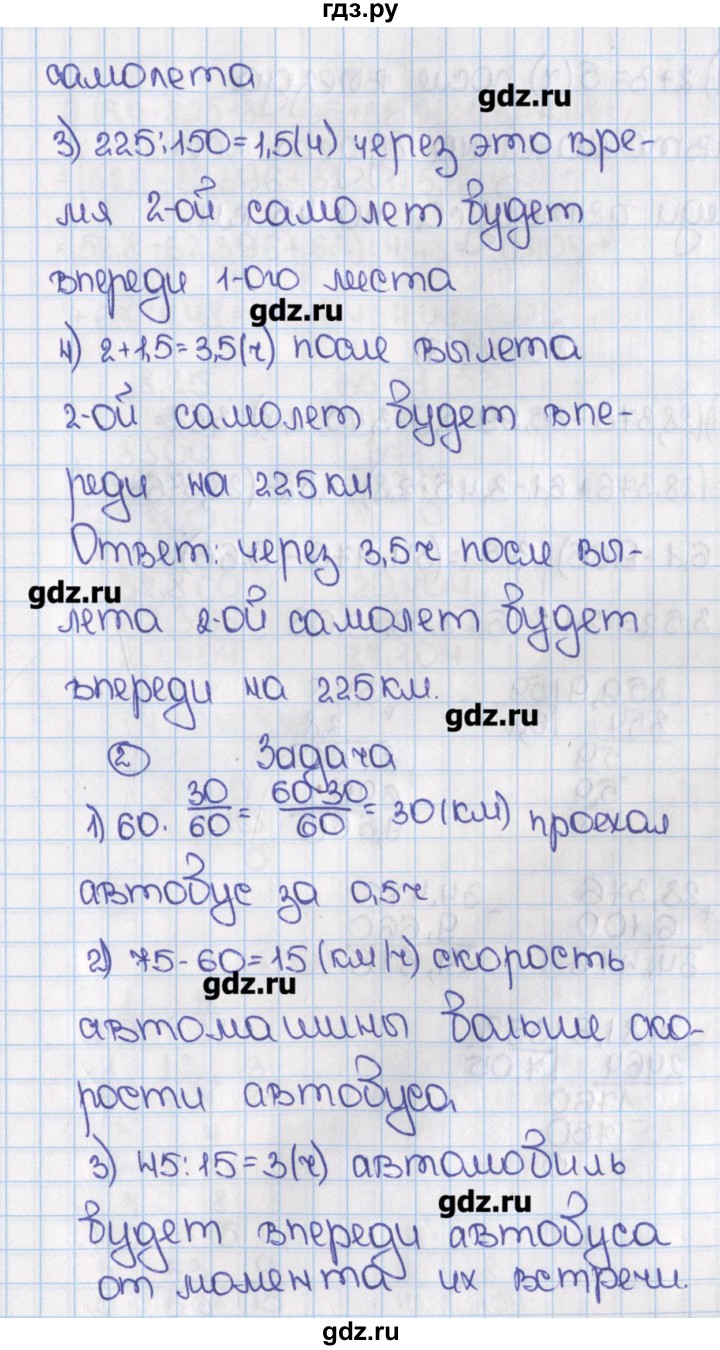 гдз.ру
самолета
gdz.ru
3) 225:150=1,5(ч) через это вре-
мя 2-ой самолет будет
впереди 1-ого места
gdz.ru
4) 2+1,5=3,5(ч) после вылета
2-ой самолет будет впе-
реди на 225 км
Ответ: через 3,5ч после вы-
gdz.ru
лета 2-ой самолет будет
впереди на 225 км.
gdz.ru
2 Задача
1) 60·30/60=60·30/60=30(км) проехал
автобус за 0,5ч
2) 75-60=15(км/ч) скорость
gdz.ru
автомашины больше ско-
рости автобуса,
3) 45:15=3(ч) автомобиль
gdz.ru
будет впереди автобуса
от момента их встречи.
gdz.ru